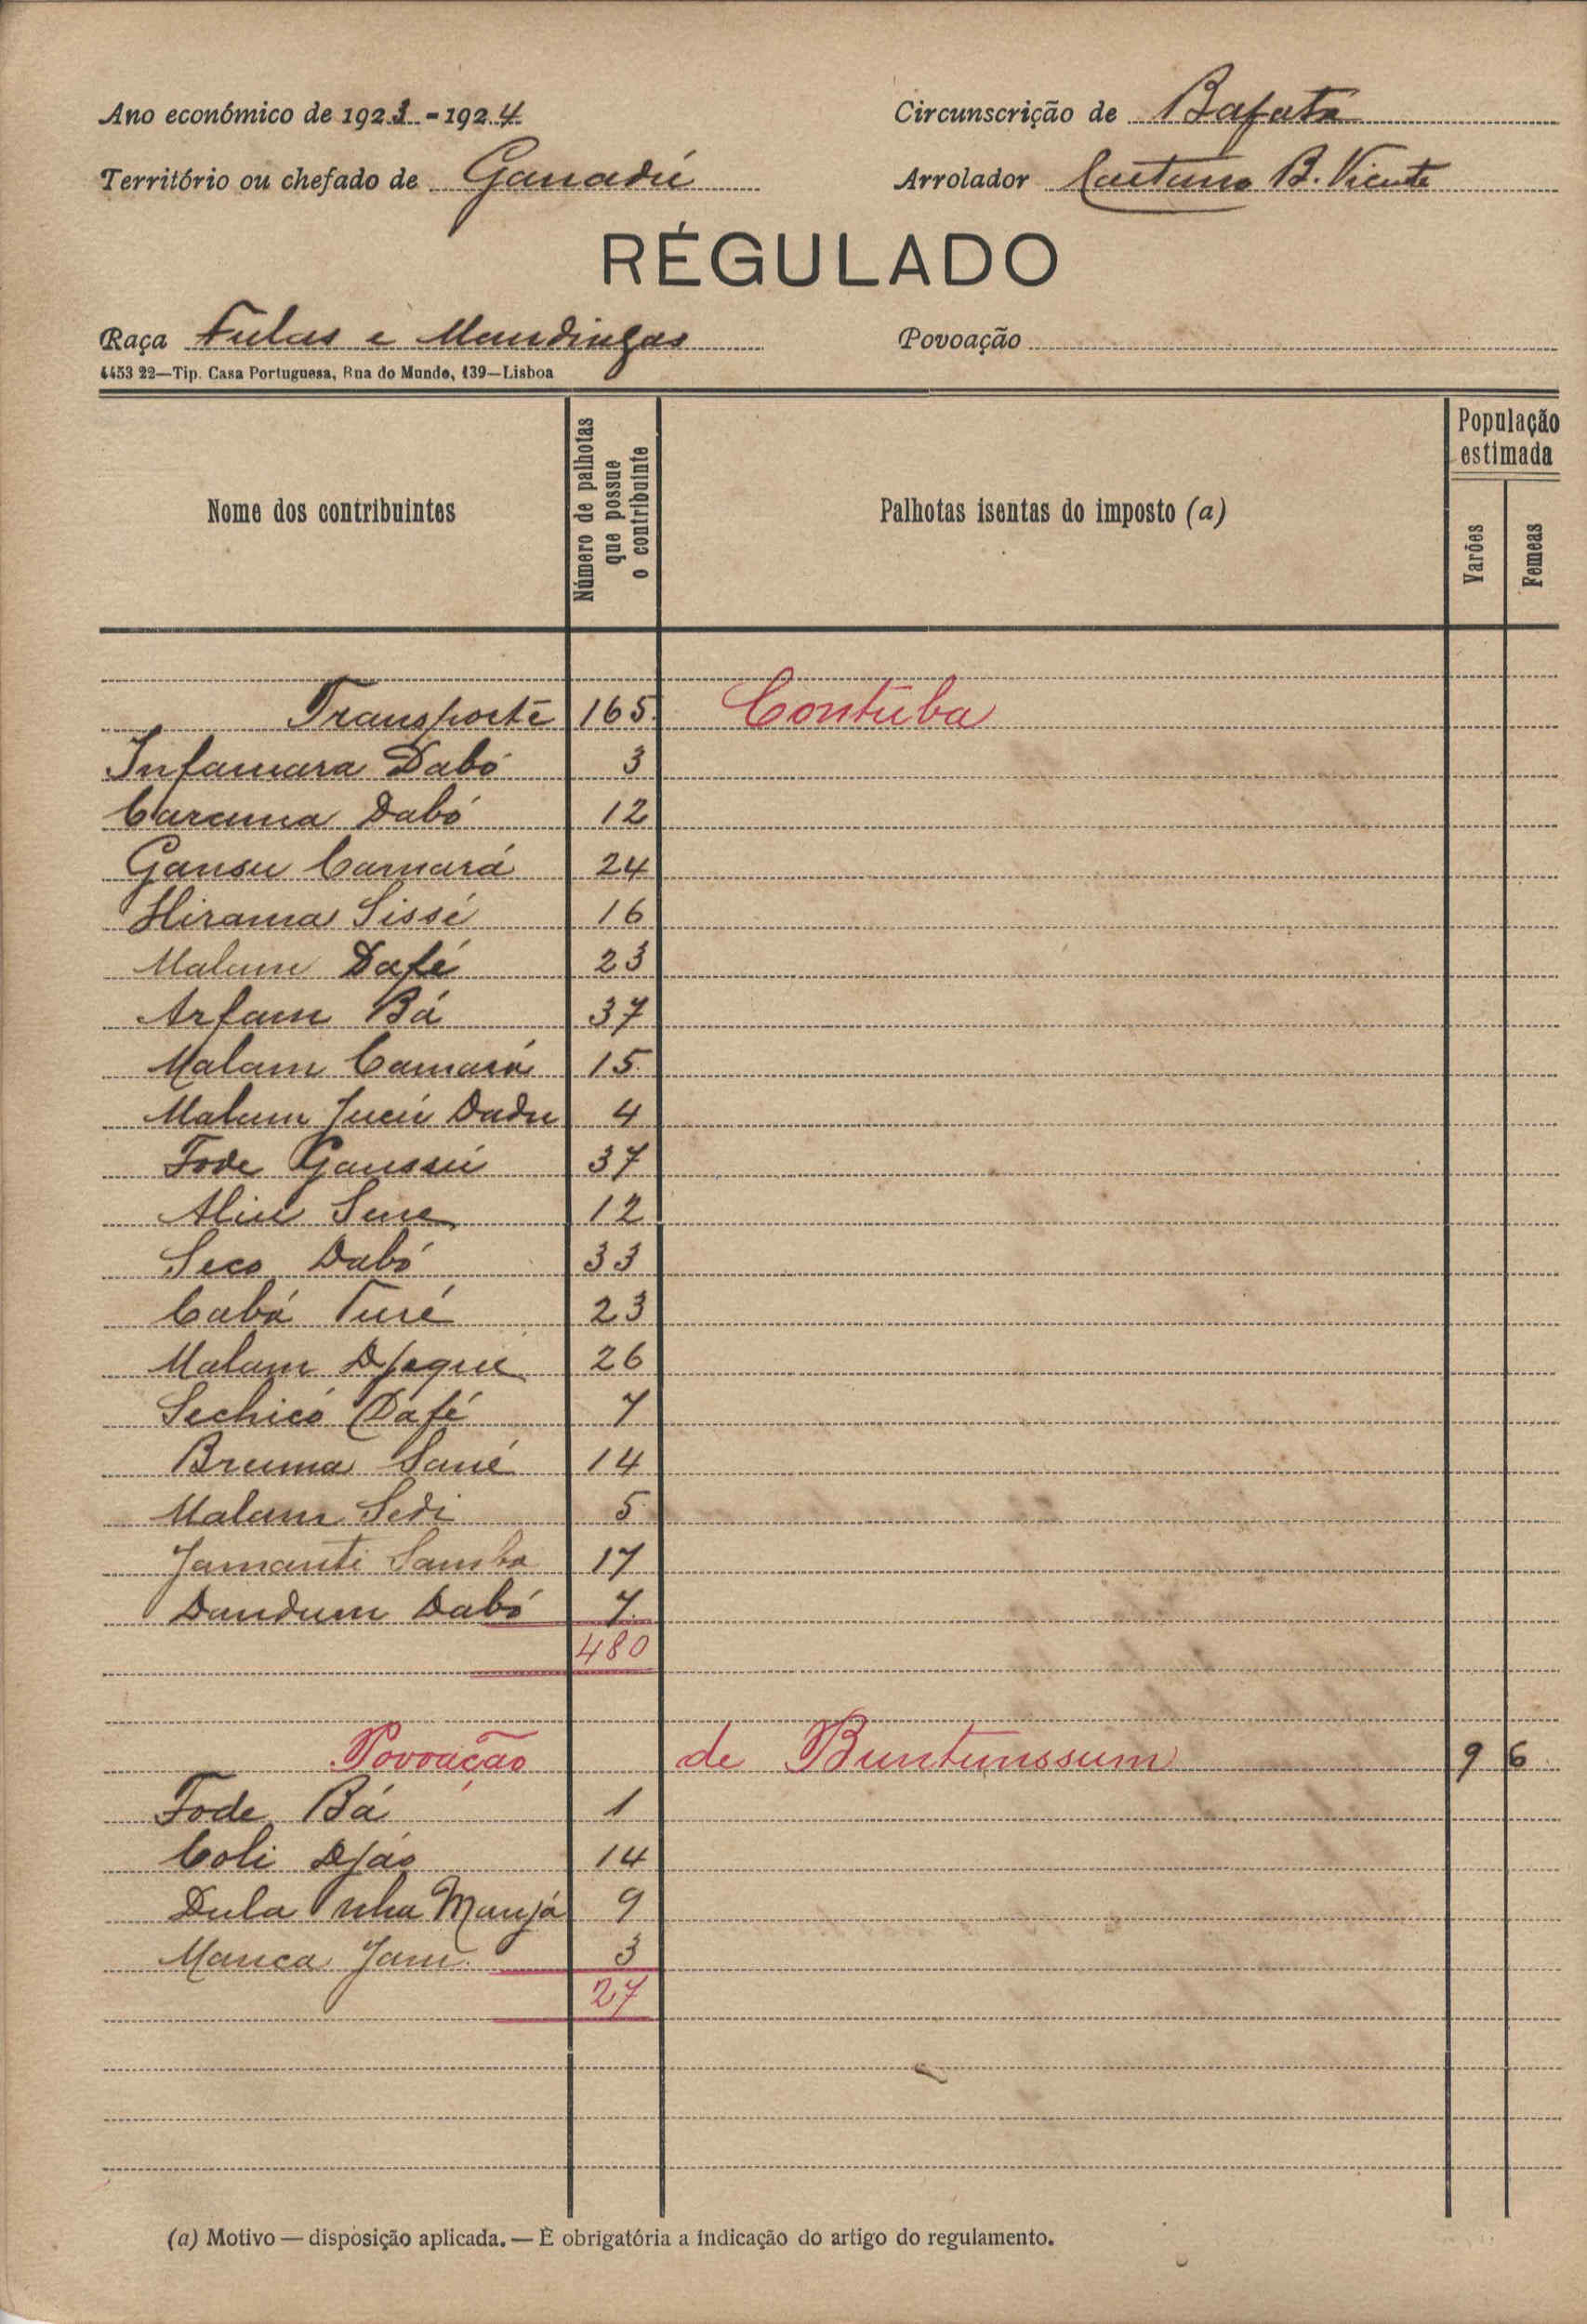 Ano económico de 1923-1924
Circunscrição de Bafatá
Território ou chefado de Ganadú
Arrolador Caetano B. Vicente
RÉGULADO
Raça Fulas e Mandingas
Povoação
4453 22—Tip. Casa Portuguesa, Rua do Mundo, 139—Lisboa
Nome dos contribuintes
Número de palhotas que possue o contribuinte
Palhotas isentas do imposto (a)
População estimada
Varões
Femeas
Transporte 165 Contuba
Infamara Dabó 3
Carama Dabó 12
Gansu Camará 24
Hirama Sissé 16
Malam Dafé 23
Arfam Bá 37
Malam Camará 15
Malam Jucu Dadu 4
Fode Gaussú 37
Aliu Sene 12
Seco Dabó 33
Cabá Turé 23
Malam Djaque 26
Sechicó Dafé 7
Breima Sané 14
Malam Sedi 5
Jamanti Samba 17
Dandum Dabó 7
480
Povoação de Buntunssum 9 6
Fode Bá 1
Coli Djáo 14
Dula nha Manjá 9
Manca Jam 3
27
(a) Motivo — disposição aplicada. — É obrigatória a indicação do artigo do regulamento.